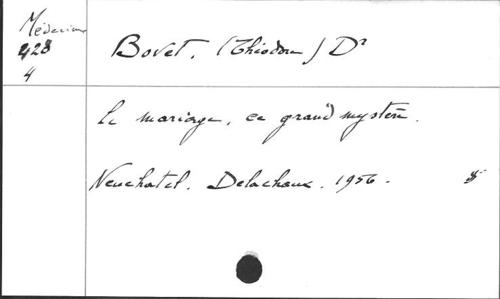 Médecine
428
4
Bovet. (Théodore) Dr
Le mariage, ce grand mystère.
Neuchatel. Delachaux. 1956.
8°